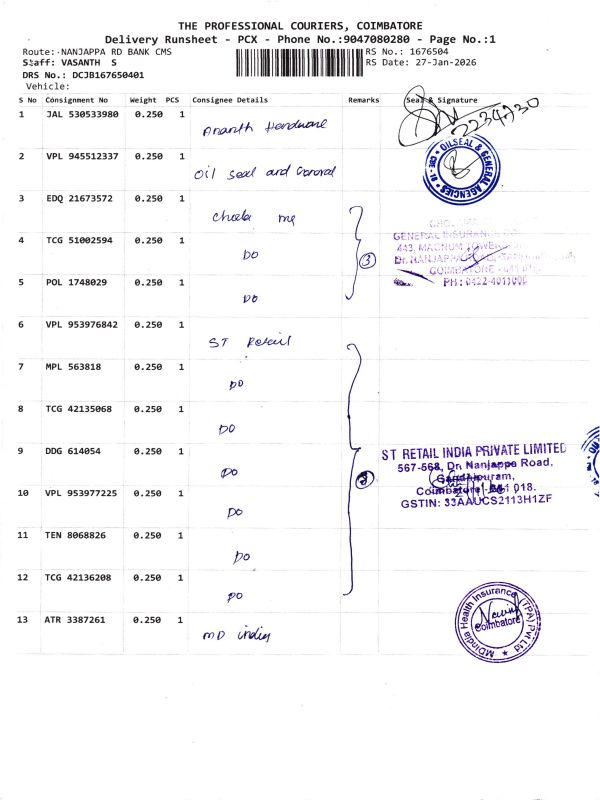 THE PROFESSIONAL COURIERS, COIMBATORE
Delivery Runsheet - PCX - Phone No.:9047080280 - Page No.:1
Route: NANJAPPA RD BANK CMS RS No.: 1676504
Staff: VASANTH S RS Date: 27-Jan-2026
DRS No.: DCJB167650401
Vehicle:
S No Consignment No Weight PCS Consignee Details Remarks Seal & Signature
1 JAL 530533980 0.250 1 Ananth Hardware
2234730
2 VPL 945512337 0.250 1 Oil seal and General
OILSEAL & GENERAL AGENCIES
3 EDQ 21673572 0.250 1 Chola ms
GENERAL INSURANCE
4 TCG 51002594 0.250 1 DO 3
443, MAGNUM TOWER
Dr. NANJAPPA
COIMBATORE
5 POL 1748029 0.250 1 DO
PH: 0422-
6 VPL 953976842 0.250 1 ST Retail
7 MPL 563818 0.250 1 DO
8 TCG 42135068 0.250 1 DO
9 DDG 614054 0.250 1 DO
ST RETAIL INDIA PRIVATE LIMITED
567-568, Dr. Nanjappa Road,
Gandhipuram,
Coimbatore - 641 018.
GSTIN: 33AAUCS2113H1ZF
10 VPL 953977225 0.250 1 DO
11 TEN 8068826 0.250 1 DO
12 TCG 42136208 0.250 1 DO
13 ATR 3387261 0.250 1 MD india
MDIndia Health Insurance (TPA) Pvt Ltd
Coimbatore